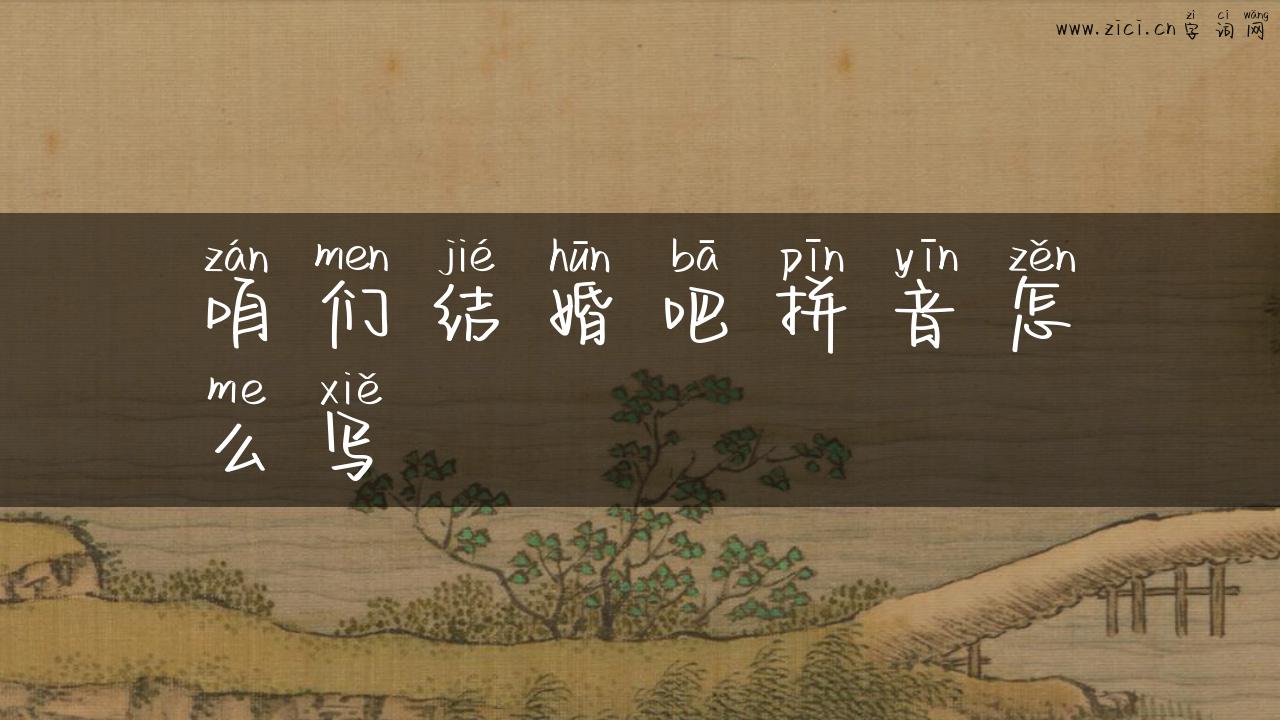 zì cí wǎng
www.zici.cn 字词网
zán men jié hūn bā pīn yīn zěn
咱们结婚吧拼音怎
me xiě
么写